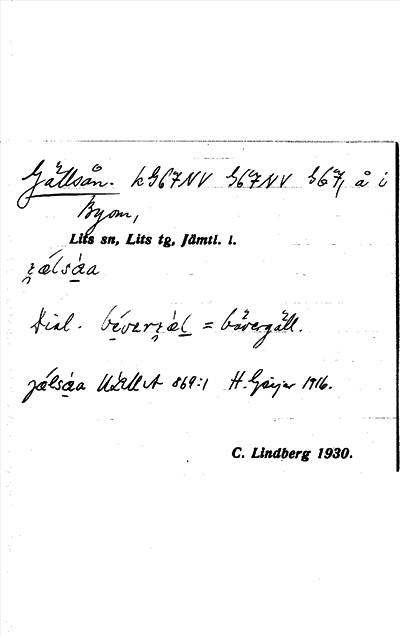 Gällsån. k 367NV 367NV 367, å i
Byom,
Lits sn, Lits tg, Jämtl. l.
zælsåa
Dial. béverzæl = bävergäll.
jælsåa 869:1 H. Geijer 1916.
C. Lindberg 1930.